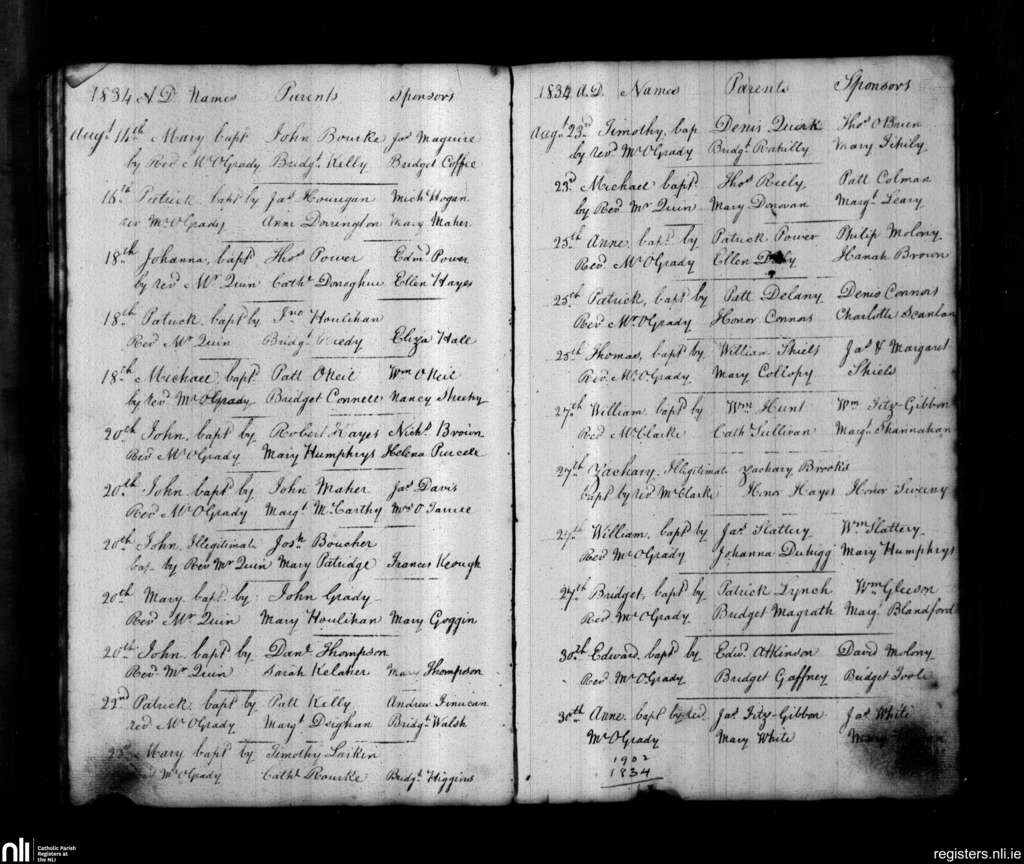 1834 A.D. Names Parents Sponsors
Augt. 14th Mary bapt John Bourke Jas Maguire
by Rev Mr OGrady Bridgt. Kelly Bridget Coffee
18th Patrick bapt by Jas Hourigan Mich Hogan
rev Mr OGrady Anne Dorrington Mary Maher
18th Johanna, bapt Thos Power Edmd Power
by revd Mr Quin Cathe Donoghue Ellen Hayes
18th Patrick, bapt by Jno Houlihan
Revd Mr Quin Bridgt. Eliza Hall
18th Michael, bapt. Patt OKeil Wm OKeil
by revd Mr OGrady Bridget Connell Nancy Sheehy
20th John, bapt by Robert Hayes Nichs Brown
Revd Mr OGrady Mary Humphrys Helena Purcell
20th John bapt by John Maher Jas Davis
Revd Mr OGrady Margt McCarthy Mrs O
20th John, Illegitimate Josh Boucher
bap by Revd Mr Quin Mary Patridge Frances Keough
20th Mary bapt. by John Grady
Revd Mr Quin Mary Houlihan Mary Goggin
20th John bapt by Danl Thompson
Revd Mr Quin Sarah Kelaher Mary Thompson
22nd Patrick bapt by Patt Kelly Andrew Finucan
revd Mr OGrady Margt Deighan Bridgt. Walsh
Mary bapt by Timothy Larkin
Mr OGrady Catht Rourke Bridgt Higgins
1834 A.D. Names Parents Sponsors
Augt. 23rd Timothy, bap Denis Quirk Thos OBrien
by revd Mr OGrady Bridgt Mary
23rd Michael bapt Thos Reely Patt Colman
by Revd Mr Quin Mary Donovan Margt. Leary
25th Anne, bapt. by Patrick Power Philip Molony
Revd Mr OGrady Ellen Hanah Brown
25th Patrick, bapt by Patt Delany Denis Connors
Revd Mr OGrady Honor Connors Charlotte Scanlan
25th Thomas, bapt by William Shiels Jas & Margaret
Revd Mr OGrady Mary Collopy Shiels
27th William bapt by Wm Hunt Wm Fitz-Gibbon
Revd Mr Clarke Cath Sullivan Margt Shannahan
27th Zachary, Illegitimate Zachary Brooks
bapt by revd Mr Clarke Honor Hayes Honor Sweeny
27th William, bapt by Jas Slattery Wm Slattery
Revd Mr OGrady Johanna Duhigg Mary Humphrys
27th Bridget, bapt by Patrick Lynch Wm Gleeson
Revd Mr OGrady Bridget Magrath Margt Blandford
30th Edward, bapt by Edwd Atkinson David Molony
Revd Mr OGrady Bridget Gaffney Bridget Toole
30th Anne bapt by revd Jas Fitz-Gibbon Jas White
Mr OGrady Mary White Mary
1902
1834
nli Catholic Parish
Registers at
the NLI
registers.nli.ie